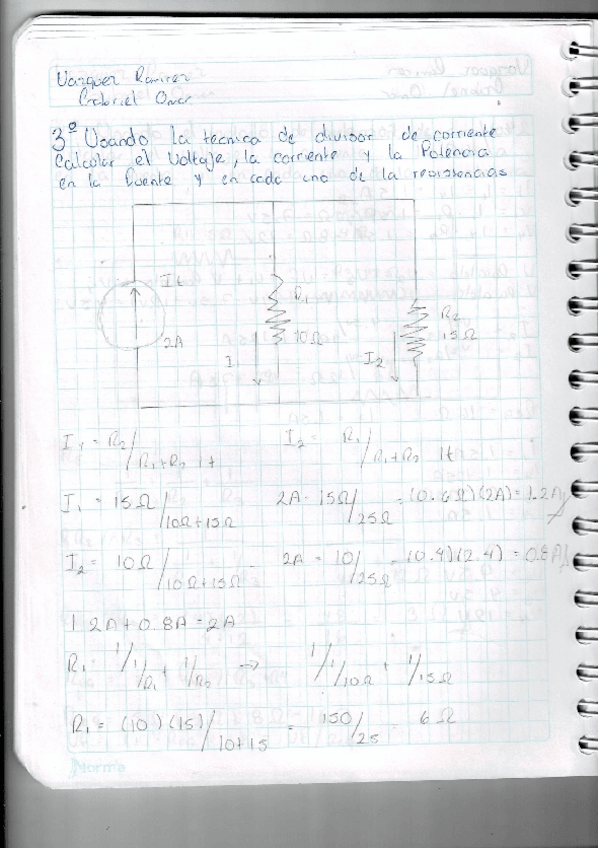 Vazquez Ramirez
Gabriel Omar
3º Usando la tecnica de divisor de corriente
Calcular el Voltaje, la corriente y la Potencia
en la fuente y en cada uno de la resistencias
It
2A
R1
10Ω
I
R2
15Ω
I2
I1 = R2/R1+R2 It I2 = R1/R1+R2 It
I1 = 15Ω/10Ω+15Ω 2A = 15Ω/25Ω = (0.6Ω)(2A) = 1.2A
I2 = 10Ω/10Ω+15Ω 2A = 10/25Ω = (0.4)(2.4) = 0.8A
1 2A + 0.8A = 2A
R1 = 1/1/R1 + 1/R2 → 1/1/10Ω + 1/15Ω
R1 = (10)(15)/10+15 = 150/25 = 6Ω
Norma